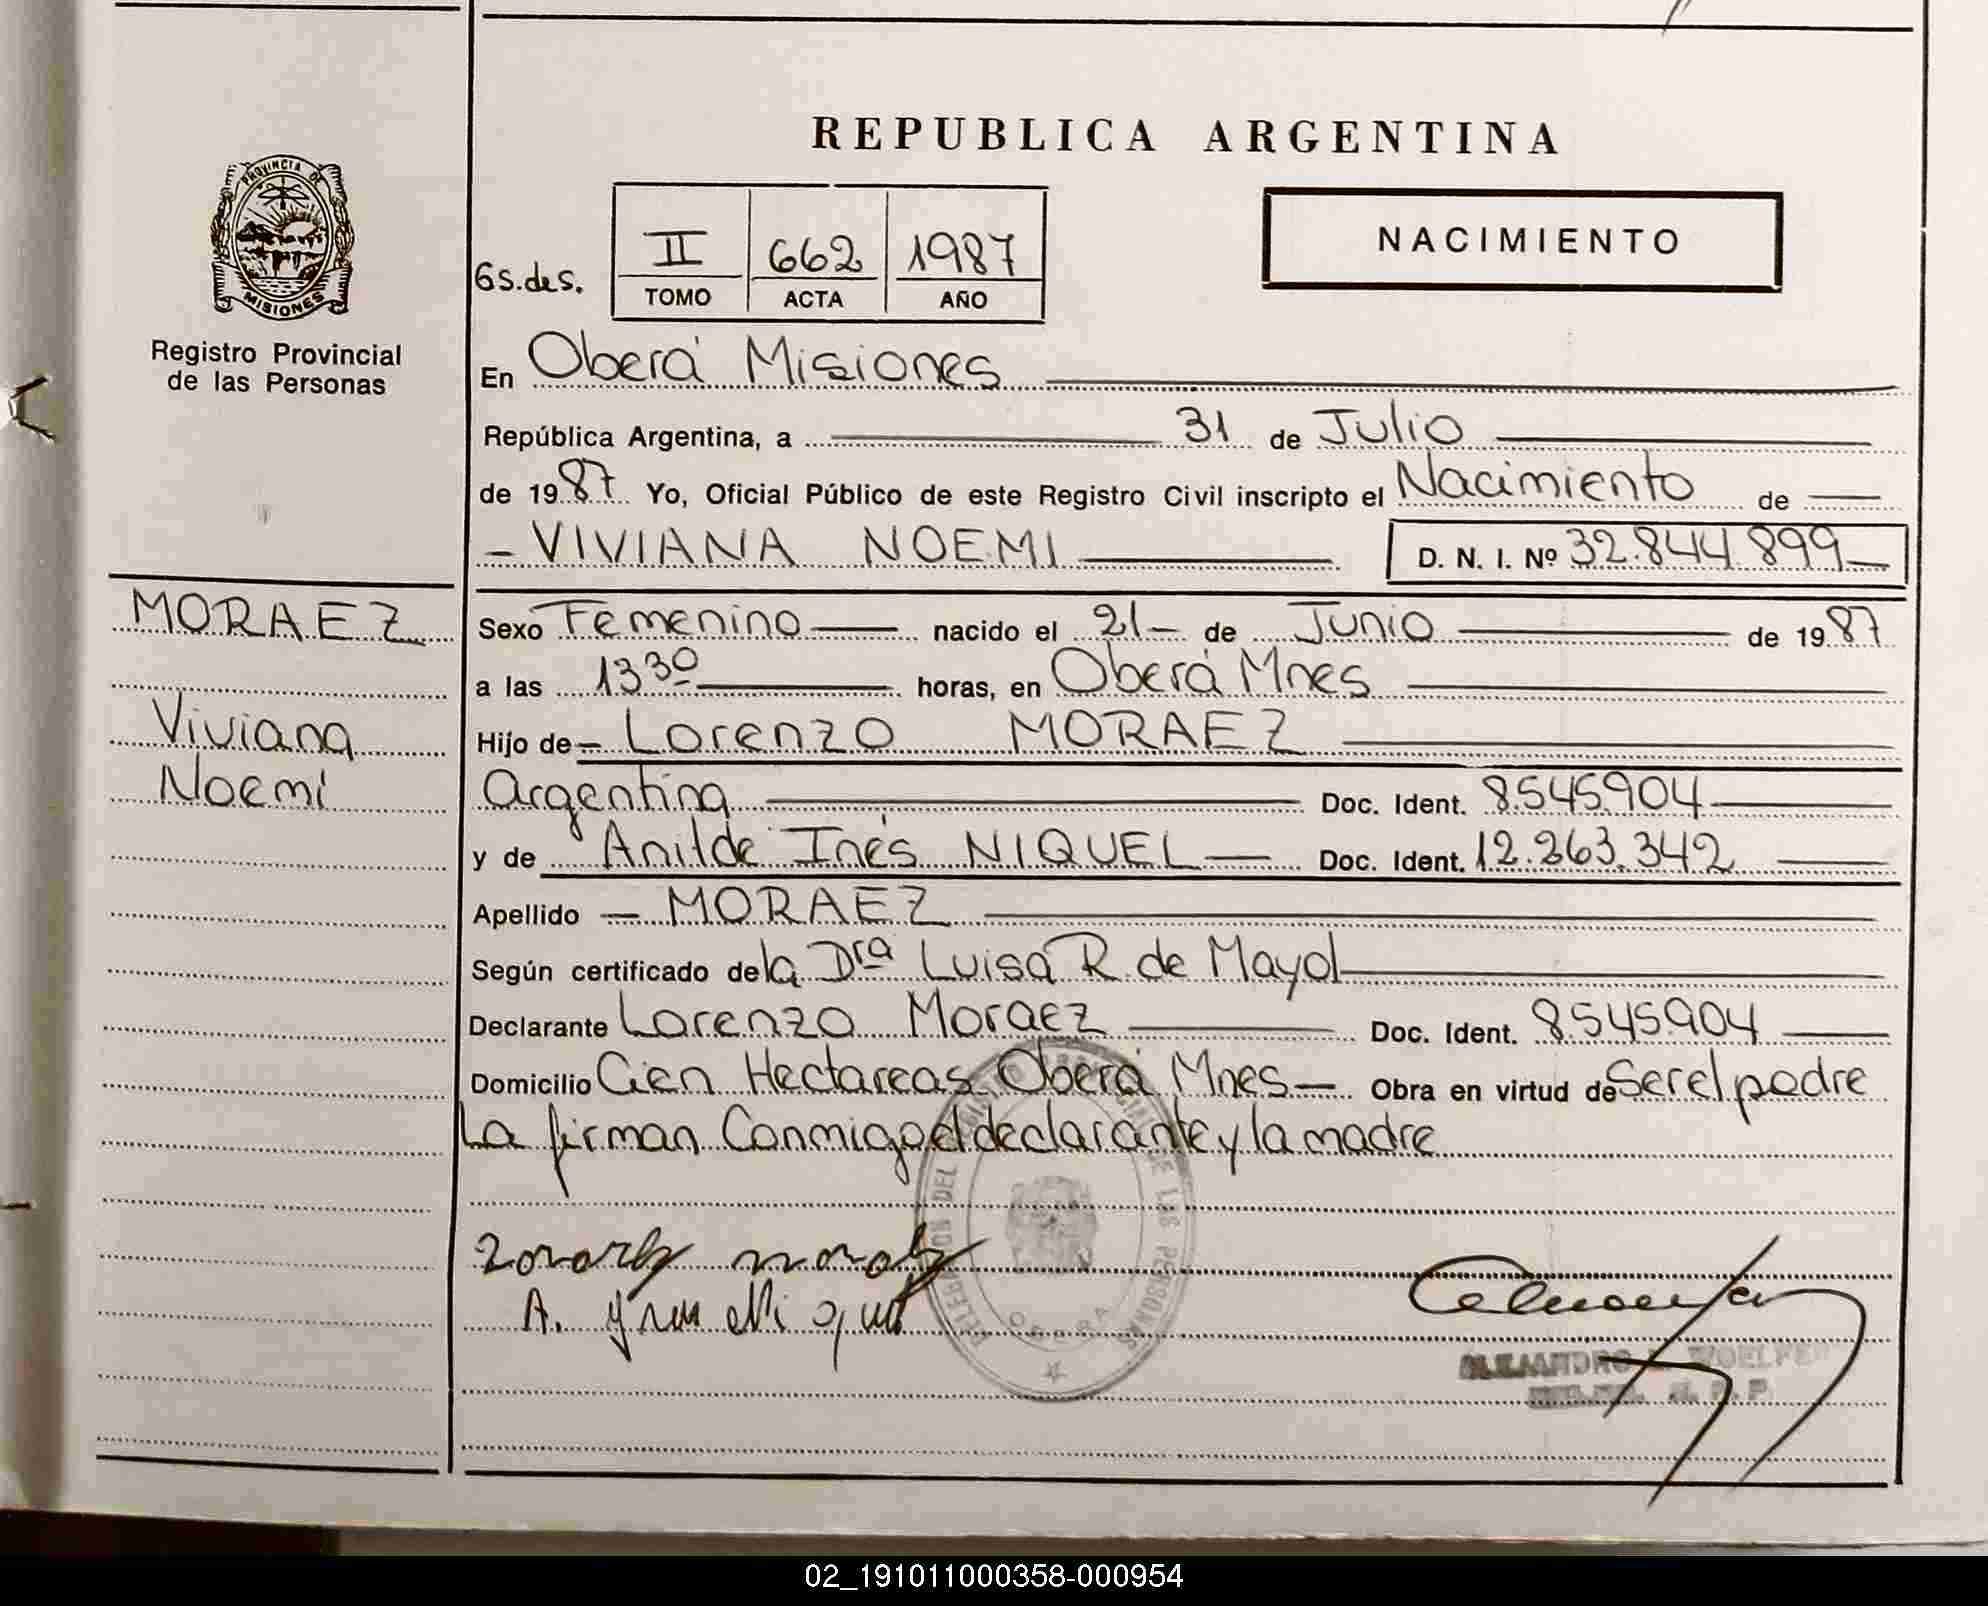 REPUBLICA ARGENTINA
PROVINCIA DE
MISIONES
Registro Provincial
de las Personas
6s.des.
II 662 1987
TOMO ACTA AÑO
NACIMIENTO
En Oberá Misiones
República Argentina, a 31 de Julio
de 1987 Yo, Oficial Público de este Registro Civil inscripto el Nacimiento de
VIVIANA NOEMI D. N. I. Nº 32.844.899
MORAEZ
Viviana
Noemi
Sexo Femenino nacido el 21 de Junio de 1987
a las 13 30 horas, en Oberá Mnes
Hijo de Lorenzo MORAEZ
Argentina Doc. Ident. 8.545.904
y de Anilde Inés NIQUEL Doc. Ident. 12.263.342
Apellido MORAEZ
Según certificado de la Dra Luisa R. de Mayol
Declarante Lorenzo Moraez Doc. Ident. 8.545.904
Domicilio Cien Hectareas Oberá Mnes Obra en virtud de Ser el padre
La firman Conmigo el declarante y la madre
DEL REGISTRO PROVINCIAL DE LAS PERSONAS
OBERA
ALEJANDRO
02_191011000358-000954